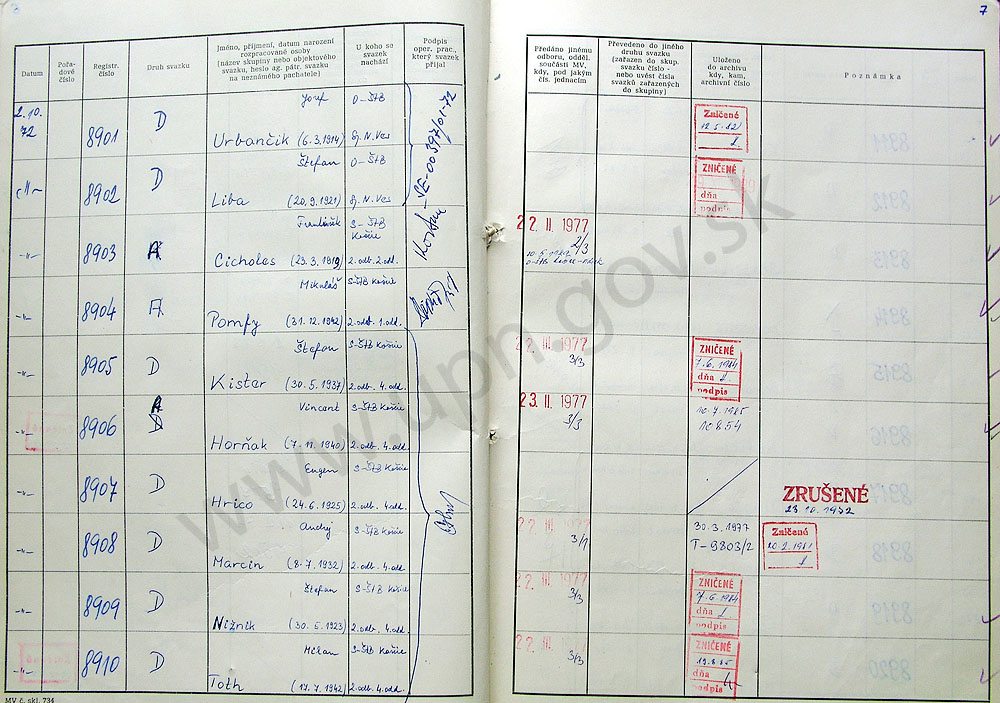 7
Datum
Pořa-
dové
číslo
Registr.
číslo
Druh svazku
Jméno, příjmení, datum narození
rozpracované osoby
(název skupiny nebo objektového
svazku, heslo ag. pátr. svazku
na neznámého pachatele)
U koho se
svazek
nachází
Podpis
oper. prac.,
který svazek
přijal
Předáno jinému
odboru, odděl.
součásti MV,
kdy, pod jakým
čís. jednacím
Převedeno do jiného
druhu svazku
(zařazen do skup.
svazku číslo -
nebo uvést čísla
svazků zařazených
do skupiny)
Uloženo
do archivu
kdy, kam,
archivní číslo
Poznámka
2.10.
72
8901
D
Jozef
Urbančík (6.3.1914)
O-ŠtB
Sp. N. Ves
Zničené
12.5.82
8902
D
Štefan
Liba (20.9.1921)
O-ŠtB
Sp. N. Ves
ZNIČENÉ
dňa
podpis
8903
A
František
Cicholes
S-ŠtB
Košice
2. odb. 2. odd.
22. II. 1977
2/3
8904
A
Mikuláš
Pompy (31.12.1942)
S-ŠtB Košice
2. odb. 1. odd.
8905
D
Štefan
Kister (30.5.1937)
S-ŠtB Košice
2. odb. 4. odd.
22. III. 1977
3/3
ZNIČENÉ
7.6.1984
dňa
podpis
8906
A
D
Vincent
Horňak (7.11.1940)
S-ŠtB Košice
2. odb. 4. odd.
23. II. 1977
3/3
10.7.1985
10854
8907
D
Eugen
Hrico (24.6.1925)
S-ŠtB Košice
2. odb. 4. odd.
ZRUŠENÉ
23.10.1972
8908
D
Andrej
Marcin (8.7.1932)
S-ŠtB Košice
2. odb. 4. odd.
22. III. 1977
3/1
30.3.1977
T-9803/2
Zničené
20.2.1981
8909
D
Štefan
Nižník (30.5.1923)
S-ŠtB Košice
2. odb. 4. odd.
22. III. 1977
3/3
ZNIČENÉ
7.6.1984
dňa
podpis
8910
D
Milan
Toth (17.7.1942)
S-ŠtB Košice
2. odb. 4. odd.
22. III. 1977
3/3
ZNIČENÉ
19.8.85
dňa
podpis
MV č. skl. 734
www.upn.gov.sk